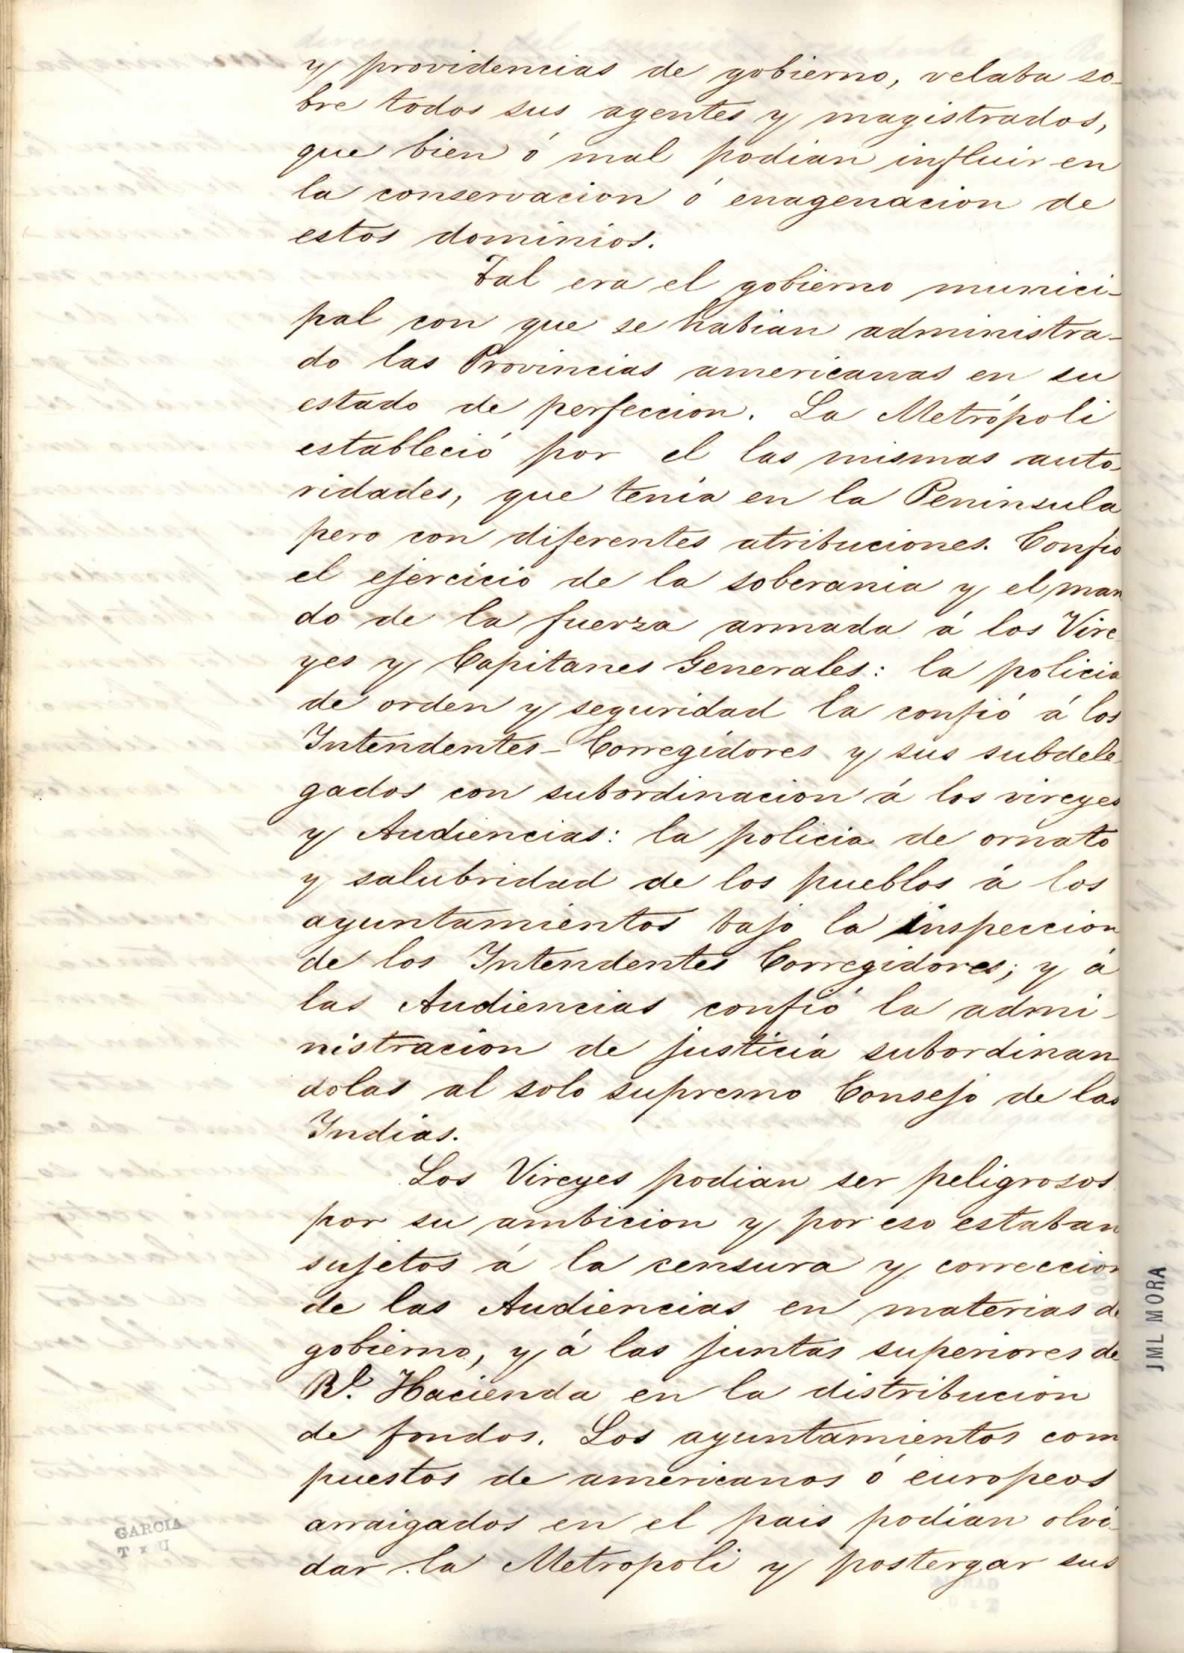 y providencias de gobierno, velaba so-
bre todos sus agentes y magistrados,
que bien ó mal podian influir en
la conservacion ó enagenacion de
estos dominios.
Tal era el gobierno munici-
pal con que se habian administra-
do las Provincias americanas en su
estado de perfeccion. La Metrópoli
estableció por el las mismas auto-
ridades, que tenía en la Peninsula
pero con diferentes atribuciones. Confió
el ejercicio de la soberania y el man
do de la fuerza armada á los Vire
yes y Capitanes Generales: la policia
de orden y seguridad la confió á los
Intendentes-Corregidores y sus subdele
gados con subordinacion á los vireyes
y Audiencias: la policia de ornato
y salubridad de los pueblos á los
ayuntamientos bajo la inspeccion
de los Intendentes Corregidores; y á
las Audiencias confió la admi-
nistracion de justicia subordinan
dolas al solo supremo Consejo de las
Indias.
Los Vireyes podian ser peligrosos
por su ambicion y por eso estaban
sujetos á la censura y correccion
de las Audiencias en materias de
gobierno, y á las juntas superiores de
Rl. Hacienda en la distribucion
de fondos. Los ayuntamientos com
puestos de americanos ó europeos
arraigados en el pais podian olvi-
dar la Metropoli y postergar sus
GARCIA
JML MORA